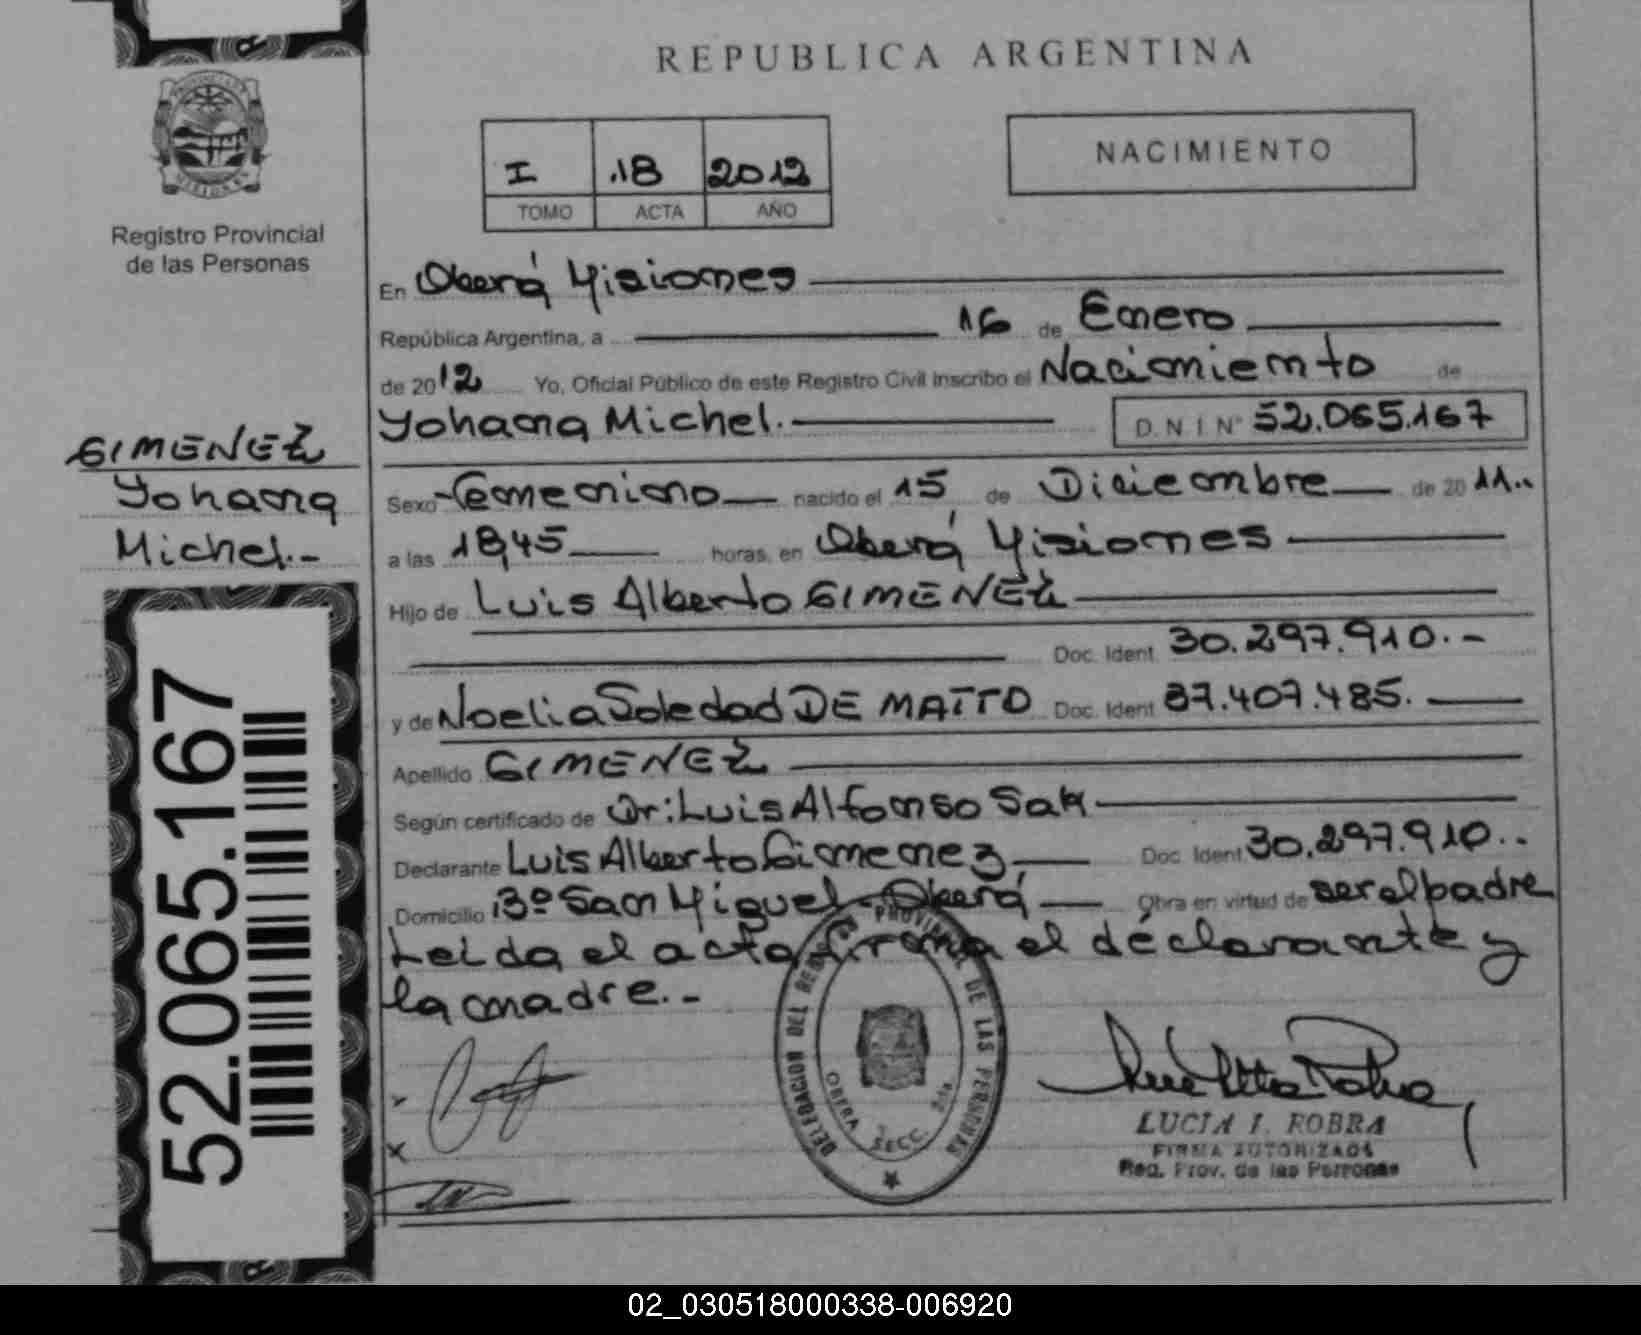 REPUBLICA ARGENTINA
I 18 2012
TOMO ACTA AÑO
NACIMIENTO
Registro Provincial
de las Personas
En Oberá Misiones
República Argentina, a 16 de Enero
de 2012 Yo, Oficial Público de este Registro Civil inscribo el Nacimiento de
Yohana Michel.- D.N.I Nº 52.065.167
GIMENEZ
Yohana
Michel.-
Sexo Femenino nacido el 15 de Diciembre de 2011..
a las 18,45 horas, en Oberá Misiones
Hijo de Luis Alberto GIMENEZ
Doc. Ident. 30.297.910.-
y de Noelia Soledad DE MATTO Doc. Ident. 37.407.485.
Apellido GIMENEZ
Según certificado de Dr: Luis Alfonso Sak
Declarante Luis Alberto Gimenez, Doc. Ident. 30.297.910..
Domicilio Bº San Miguel - Oberá Obra en virtud de ser el padre
Leida el acta firma el declarante y
la madre.-
52.065.167
DELEGACION DEL REGISTRO PROVINCIAL DE LAS PERSONAS
OBERA SECC. 2da
LUCIA I. ROBRA
FIRMA AUTORIZADA
Reg. Prov. de las Personas
02_030518000338-006920